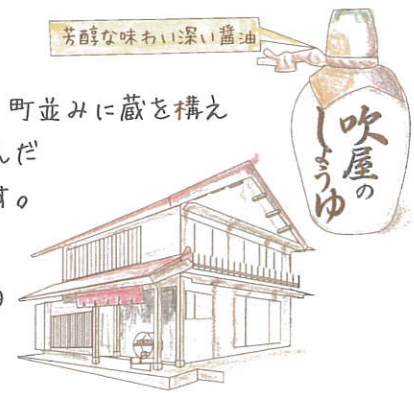 芳醇な味わい深い醤油
吹屋の
しょうゆ
町並みに蔵を構え
んだ
す。